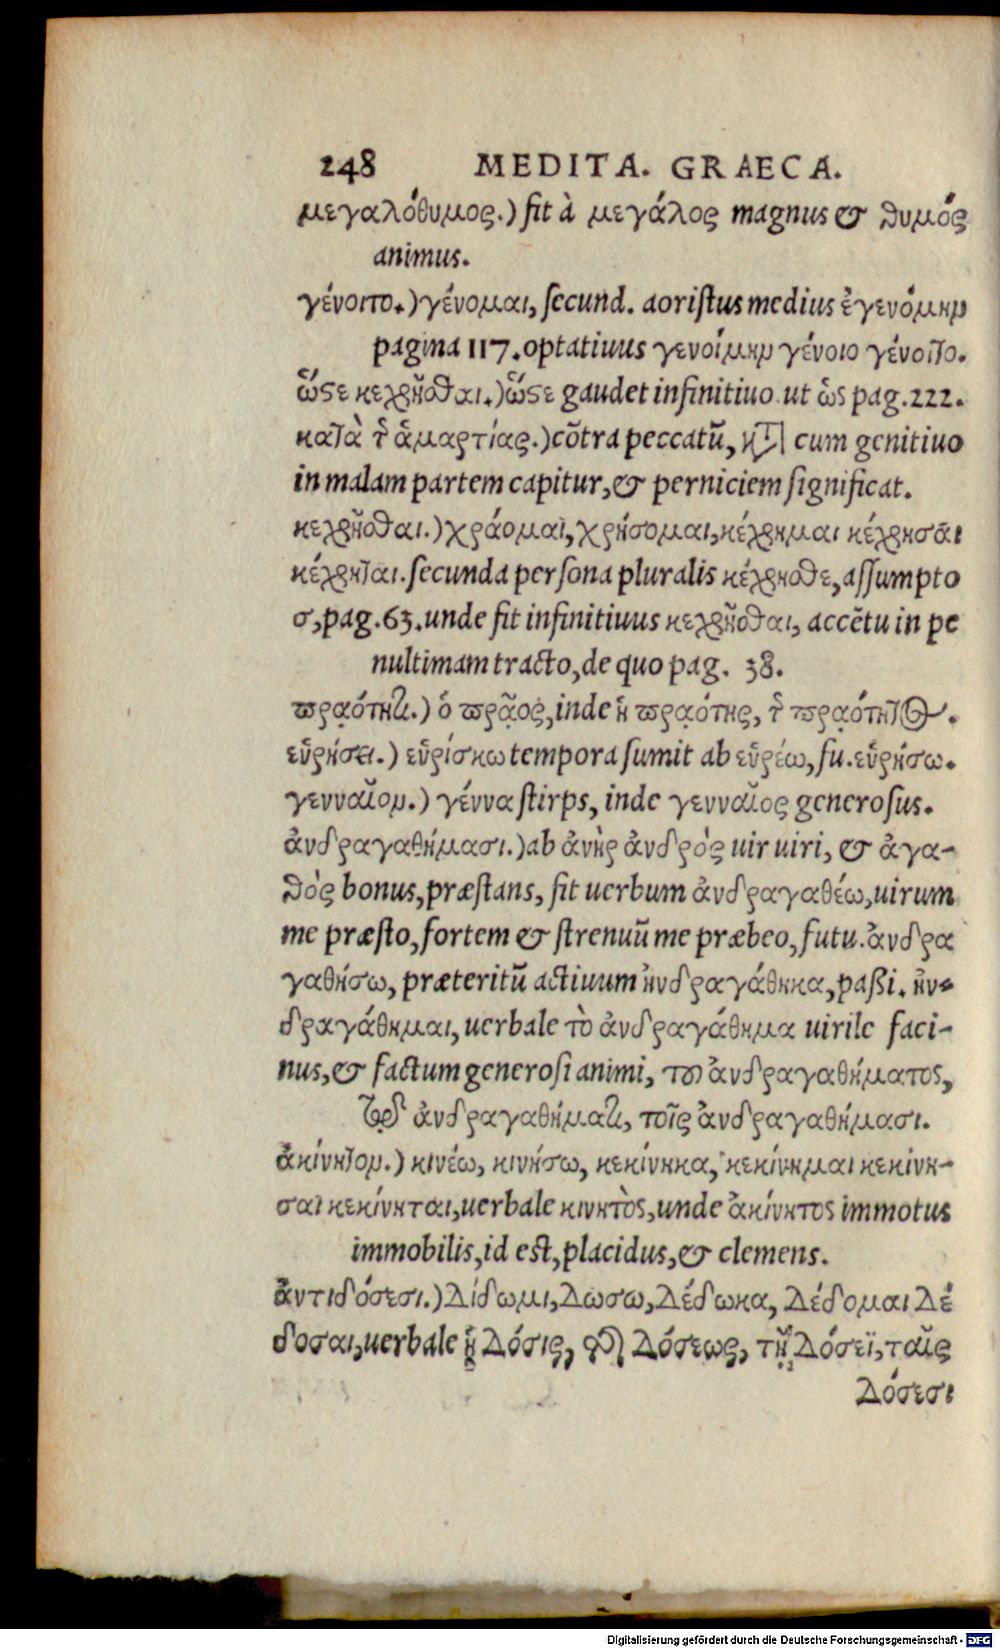 248 MEDITA. GRAECA.
μεγαλόθυμος.) fit à μεγάλος magnus & θυμός
animus.
γένοιτο.) γένομαι, secund. aoristus medius ἐγενόμην
pagina 117. optatiuus γενοίμην γένοιο γένοιτο.
ὥστε κεχρῆσθαι.) ὥστε gaudet infinitiuo ut ὡς pag. 222.
κατὰ τῆς ἁμαρτίας.) cōtra peccatū, κατὰ cum genitiuo
in malam partem capitur, & perniciem significat.
κεχρῆσθαι.) χράομαι, χρήσομαι, κέχρημαι κέχρησαι
κέχρηται. secunda persona pluralis κέχρησθε, assumpto
σ, pag. 63. unde fit infinitiuus κεχρῆσθαι, accētu in pe
nultimam tracto, de quo pag. 38.
πραότητι.) ὁ πρᾶος, inde ἡ πραότης, τῆς πραότητος.
εὑρήσει.) εὑρίσκω tempora sumit ab εὑρέω, fu. εὑρήσω.
γενναῖον.) γέννα stirps, inde γενναῖος generosus.
ἀνδραγαθήμασι.) ab ἀνὴρ ἀνδρὸς uir uiri, & ἀγα-
θὸς bonus, præstans, fit uerbum ἀνδραγαθέω, uirum
me præsto, fortem & strenuū me præbeo, futu. ἀνδρα
γαθήσω, præteritū actiuum ἠνδραγάθηκα, paßi. ἠν-
δραγάθημαι, uerbale τὸ ἀνδραγάθημα uirile faci-
nus, & factum generosi animi, τοῦ ἀνδραγαθήματος,
τῷ ἀνδραγαθήματι, τοῖς ἀνδραγαθήμασι.
ἀκίνητον.) κινέω, κινήσω, κεκίνηκα, κεκίνημαι κεκίνη-
σαι κεκίνηται, uerbale κινητὸς, unde ἀκίνητος immotus
immobilis, id est, placidus, & clemens.
ἀντιδόσεσι.) δίδωμι, δωσω, δέδωκα, δέδομαι δέ
δοσαι, uerbale ἡ δόσις, τῆς δόσεως, τῇ δόσεϊ, ταῖς
δόσεσι
Digitalisierung gefördert durch die Deutsche Forschungsgemeinschaft - DFG